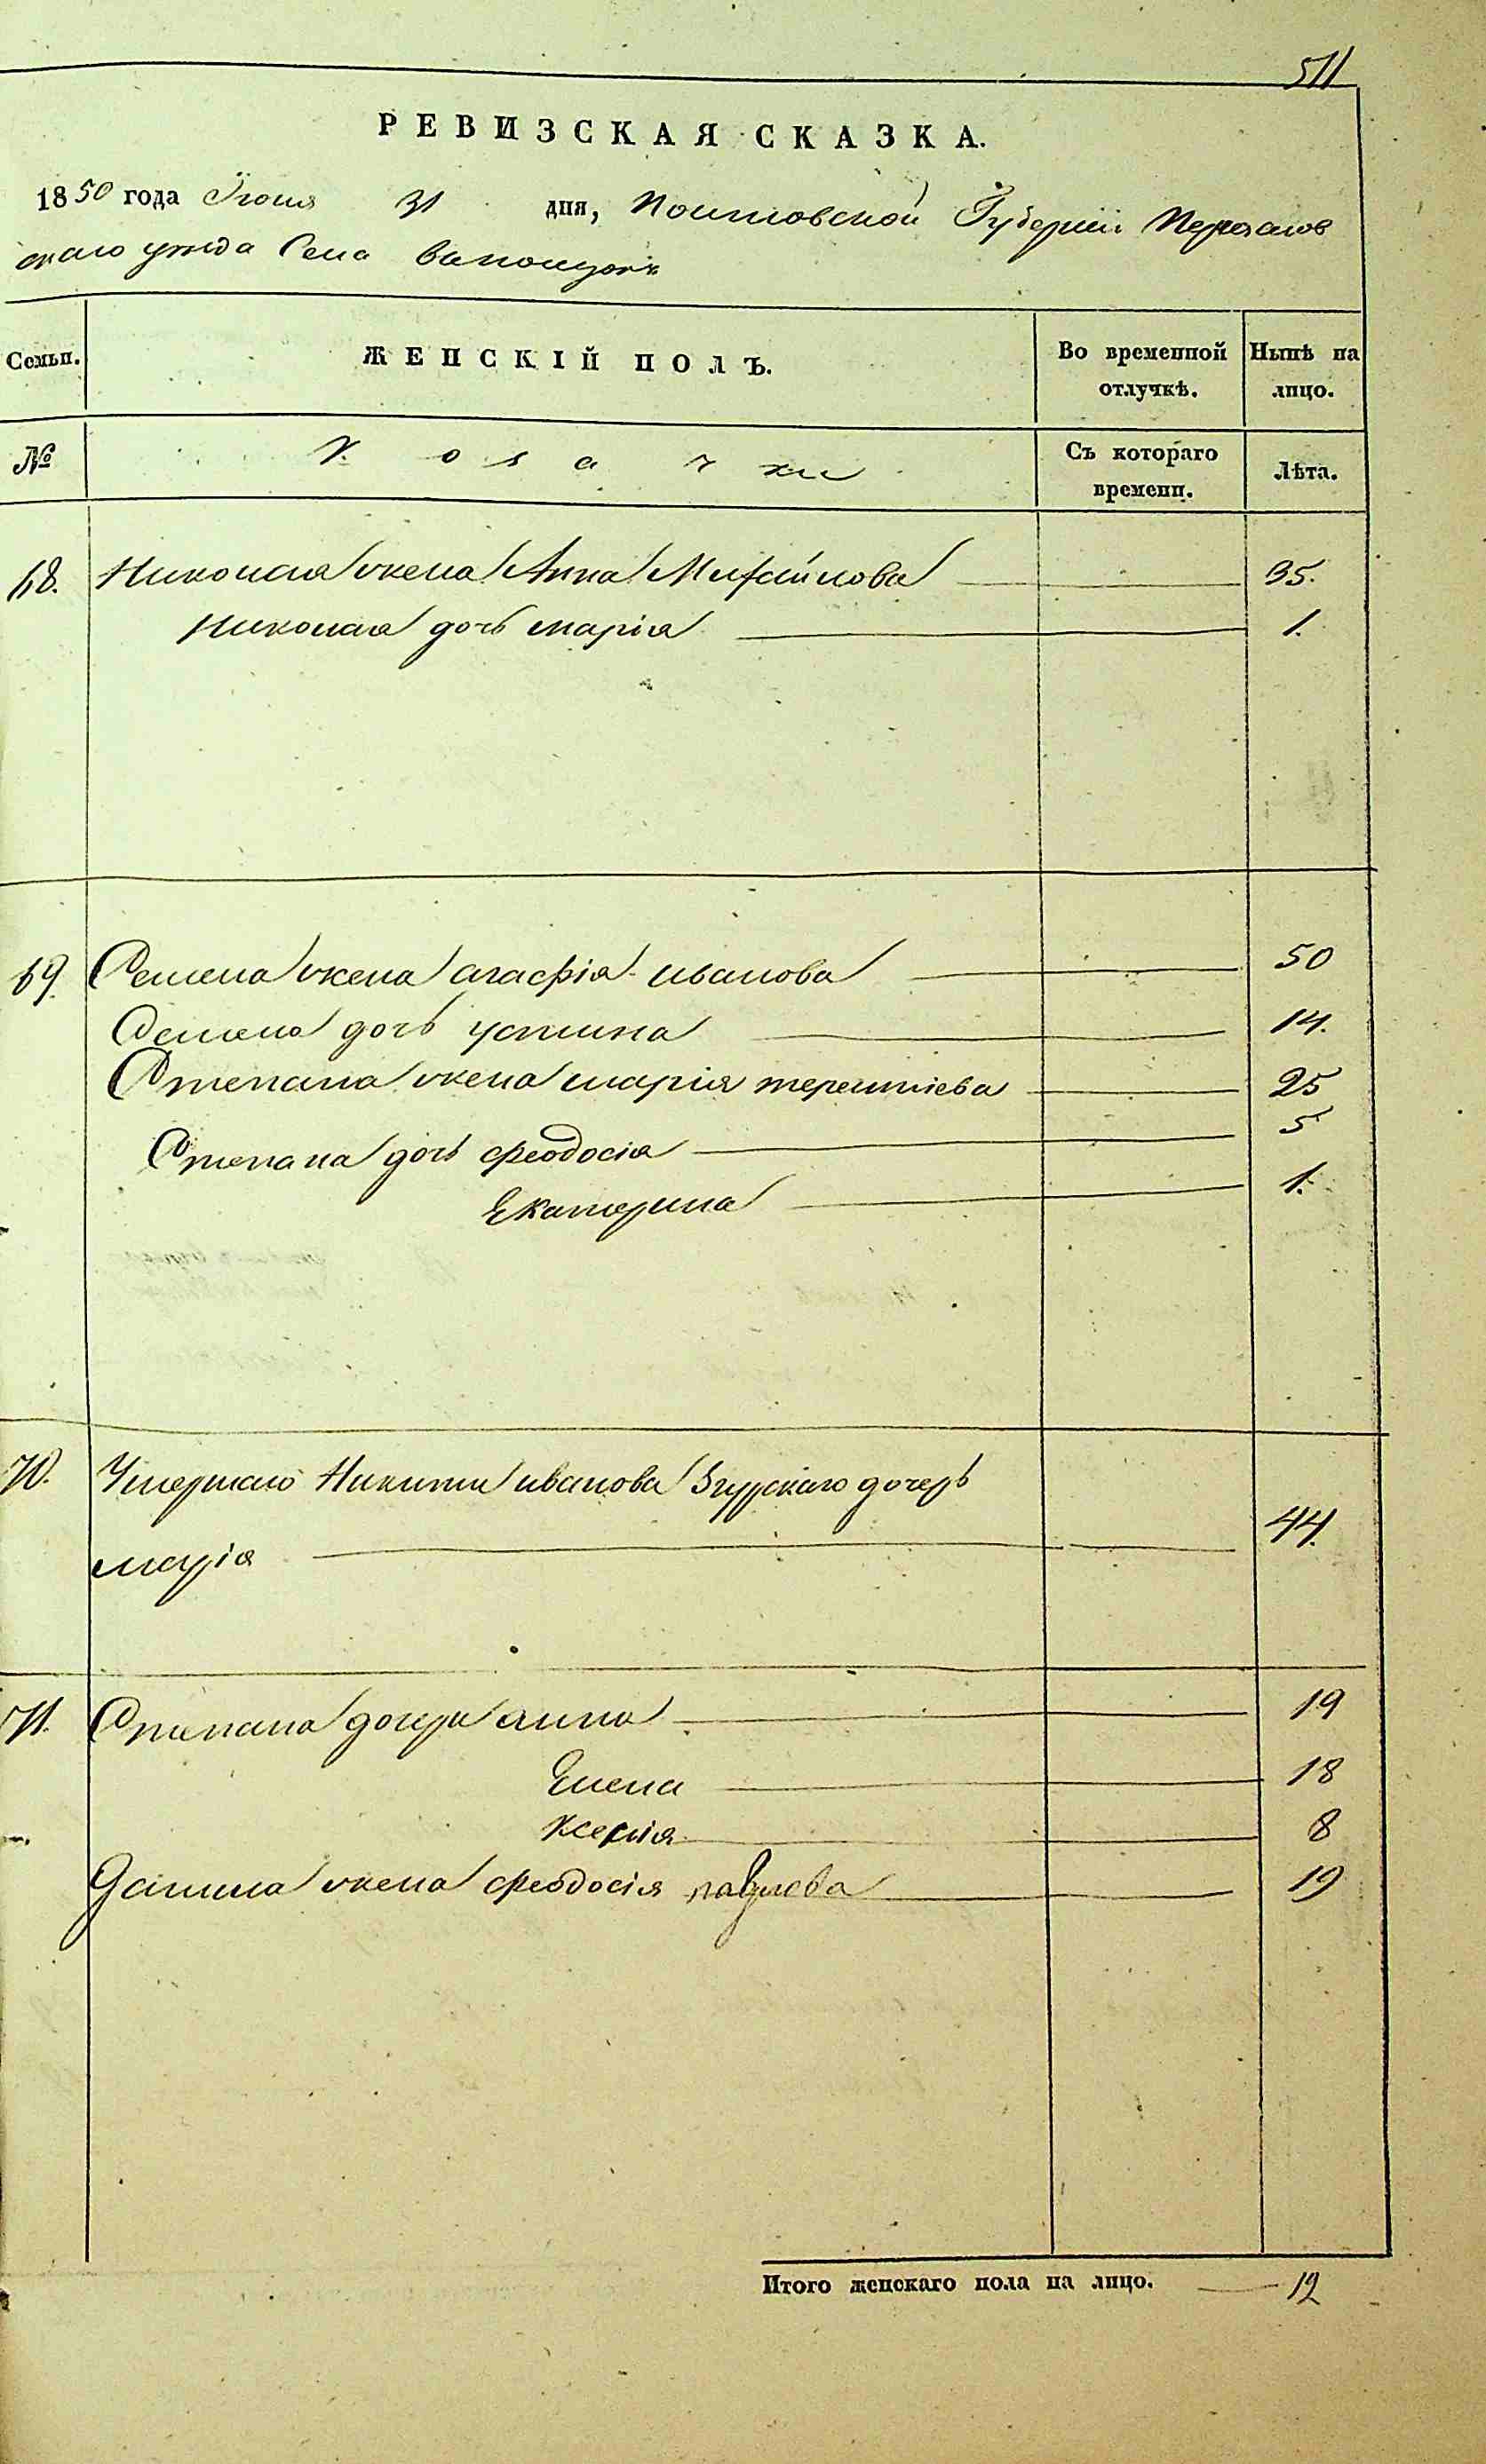 511
РЕВИЗСКАЯ СКАЗКА.
1850 года Іюня 31 дня, Полтовской Губерніи Переяслов
скаго уезда Села
Семьи. ЖЕНСКІЙ ПОЛЪ. Во временной отлучкѣ. Нынѣ на лицо.
№ Козачки Съ котораго времени. Лѣта.
68. Николая жена Анна Михайлова 35.
Николая дочь марія 1.
69. Семена жена агафія иванова 50
Семена дочь устина 14.
Степана жена марія терентіева 25
Степана дочь феодосія 5
Екатерина 1.
70. Умершаго Никиты иванова Згурскаго дочерь
марія 44.
71. Степана дочери анна 19
Елена 18
Ксенія 8
Данила жена феодосія павлова 19
Итого женскаго пола на лицо. 12